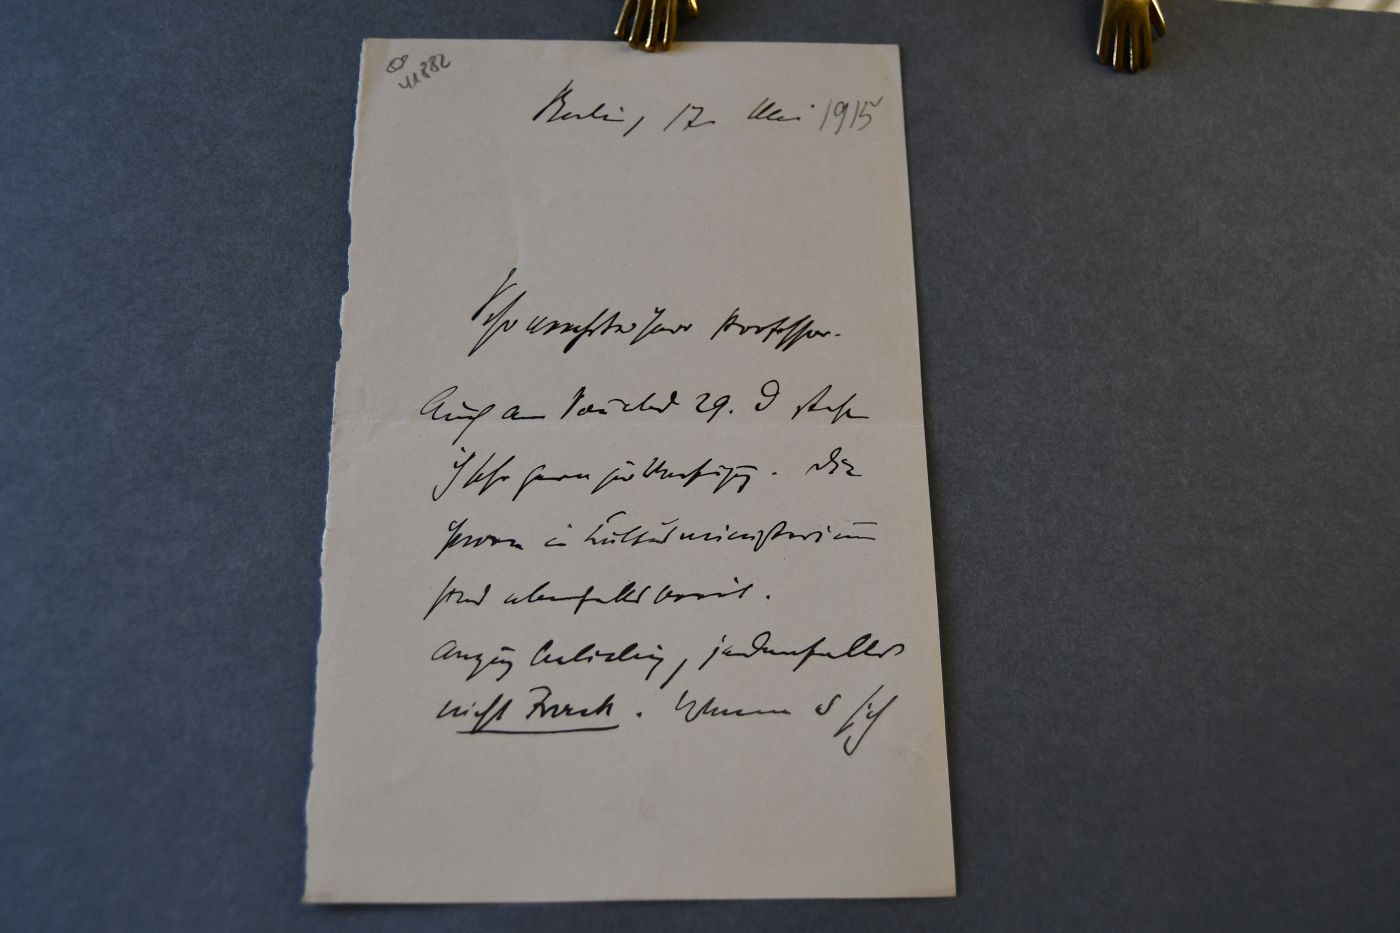 41882
Berlin, 17. Mai 1915
Sehr verehrter Herr Professor.
Auch am Sonnabend 29. D stehe
ich sehr gern zur Verfügung. Die
Herren im Kultusministerium
sind ebenfalls bereit.
Anzug beliebig, jedenfalls
nicht Frack. Wenn es sich